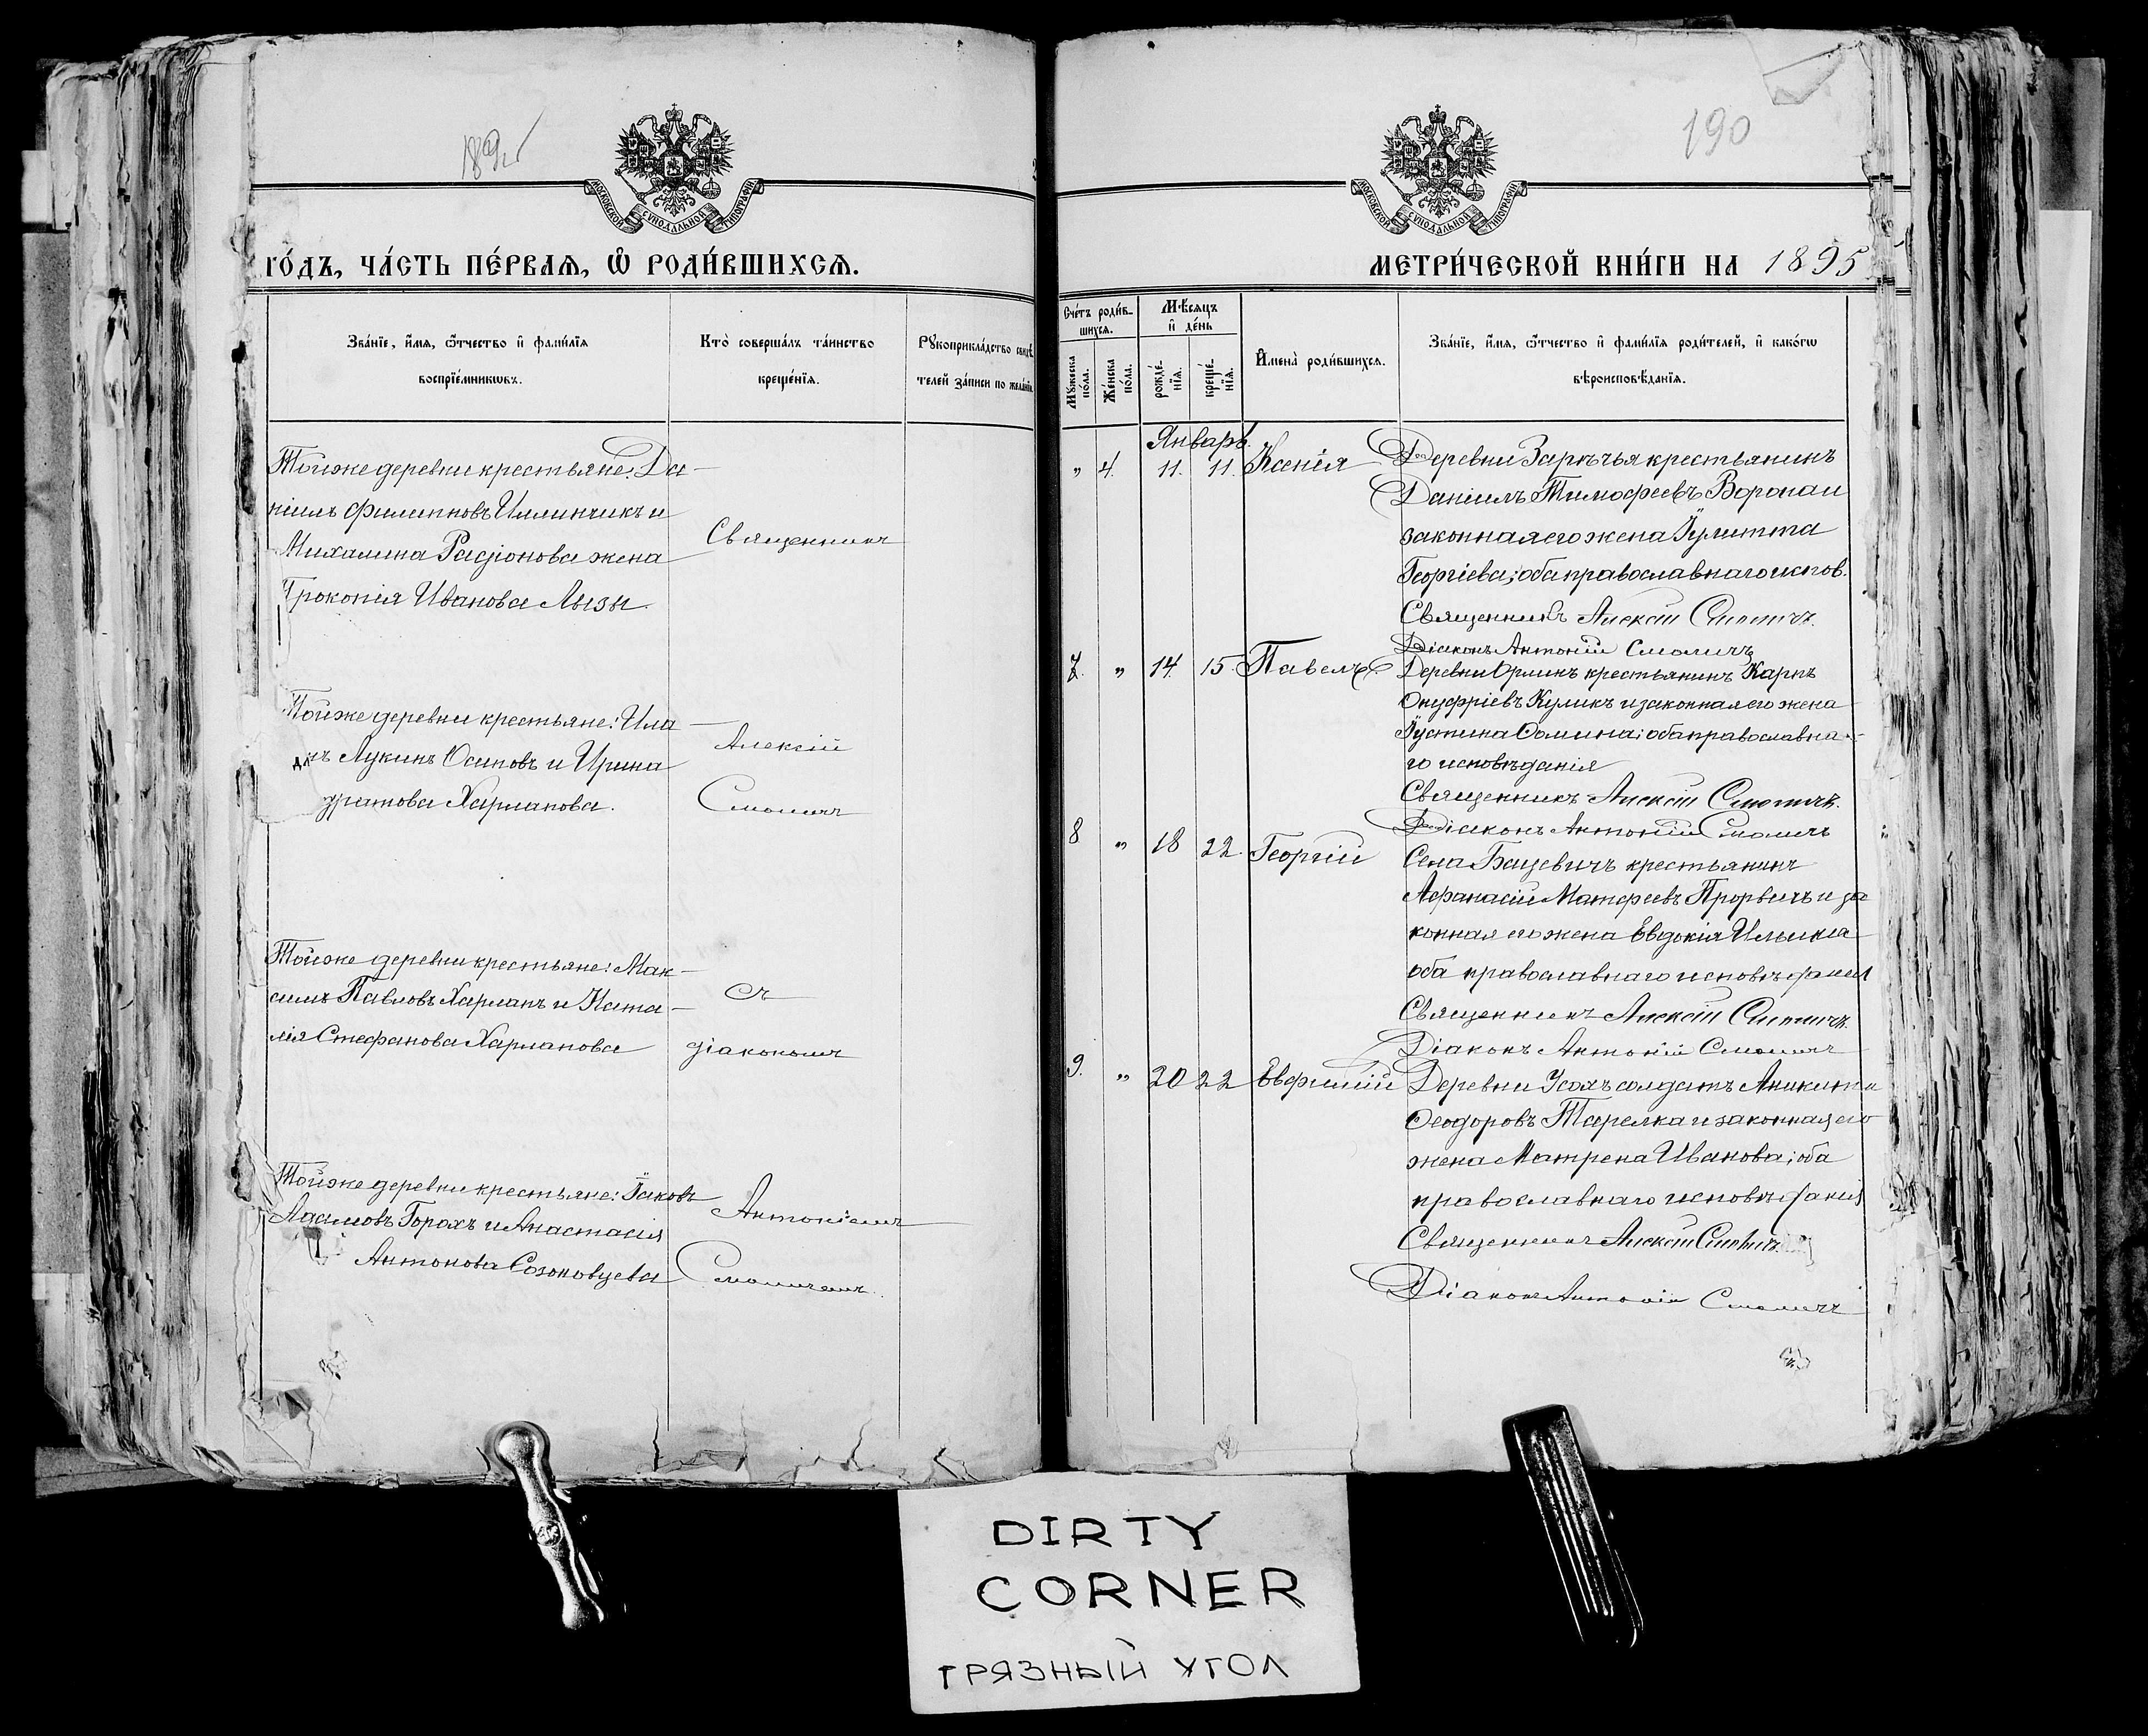 189
МОСКОВСКОЙ СѴНОДАЛЬНОЙ ТИПОГРАФІИ
го́дъ, ча́сть пе́рваѧ, ѽ роди́вшихсѧ.
Зва́нїе, и҆́мѧ, ѻ҆́тчество и҆ фами́лїѧ
воспрїе́мникѡвъ.
Кто̀ соверша́лъ та́инство
креще́нїѧ.
Рꙋкоприкла́дство свидѣ́
телей за́писи по жела́нїю
Тойже деревни крестьяне: Да-
ніилъ Филипповъ Илминчикъ и
Михалина Радіонова жена
Прокопія Ивановa Лызы.
Священникъ
Тойже деревни крестьяне: Ила
Лукинъ Осиповъ и Ирина
Харланова.
Алексій
Смоличъ
Тойже деревни крестьяне: Мак-
симъ Павловъ Харланъ и Ната-
лія Стефанова Харланова
съ
діакономъ
Тойже деревни крестьяне: Іаковъ
Адамовъ Горохъ и Анастасія
Антонова Созоновцева
Антоніемъ
Смоличемъ.
190
МОСКОВСКОЙ СѴНОДАЛЬНОЙ ТИПОГРАФІИ
метри́ческой кни́ги на 1895
Сче́тъ роди́в-
шихсѧ.
Мꙋ́жеска
по́ла.
Же́нска
по́ла.
Мѣ́сѧцъ
и҆ де́нь
рожде́-
нїѧ.
креще́-
нїѧ.
И҆мена̀ роди́вшихсѧ.
Зва́нїе, и҆́мѧ, ѻ҆́тчество и҆ фами́лїѧ роди́телей, и҆ како́гѡ
вѣроисповѣ́данїѧ.
Январь.
„ 4. 11. 11. Ксенія Деревни Зарѣчья крестьянинъ
Даніилъ Тимофеевъ Воропаи
законная его жена Іулитта
Георгіева; оба православнаго испов.
Священникъ Алексій Смоличъ.
Діаконъ Антоній Смоличъ
7. „ 14. 15 Павелъ Деревни Орлинъ крестьянинъ Карпъ
Онуфріевъ Куликъ и законная его жена
Іустина Ѳомина; оба православна-
го исповѣданія
Священникъ Алексій Смоличъ.
Діаконъ Антоній Смоличъ
8 „ 18 22. Георгій Села Бацевичъ крестьянинъ
Афанасій Матфеевъ Прорвичъ и за
конная его жена Евдокія Ильина
оба православнаго исповѣданія
Священникъ Алексій Смоличъ.
Діаконъ Антоній Смоличъ
9. „ 20 22 Евфимій Деревни Усохъ солдатъ Аникита
Ѳеодоровъ Тарелка и законная его
жена Матрена Иванова; оба
православнаго исповѣданія
Священникъ Алексій Смоличъ.
Діаконъ Антоній Смоличъ
DIRTY
CORNER
ГРЯЗНЫЙ УГОЛ